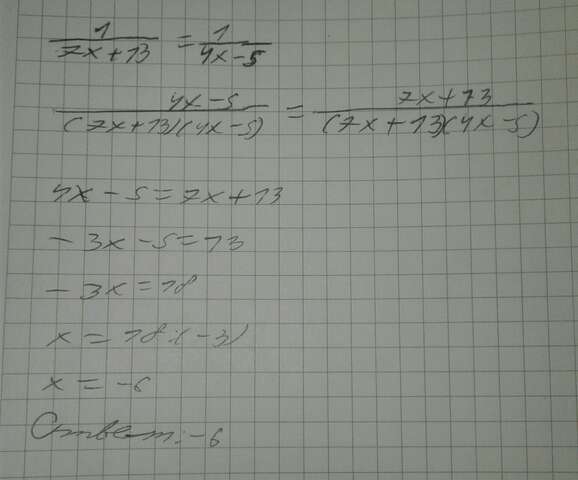 1/(7x+13) = 1/(4x-5)
(4x-5)/((7x+13)(4x-5)) = (7x+13)/((7x+13)(4x-5))
4x - 5 = 7x + 13
- 3x - 5 = 13
- 3x = 18
x = 18:(-3)
x = -6
Ответ: -6